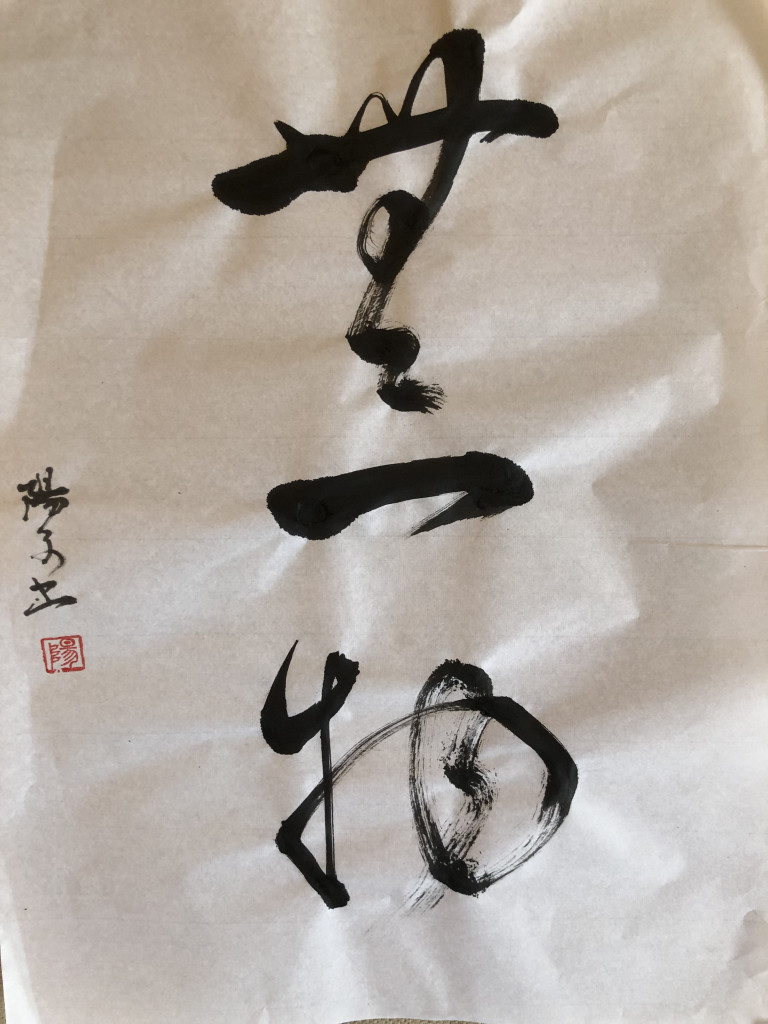 無一物
陽子書
陽